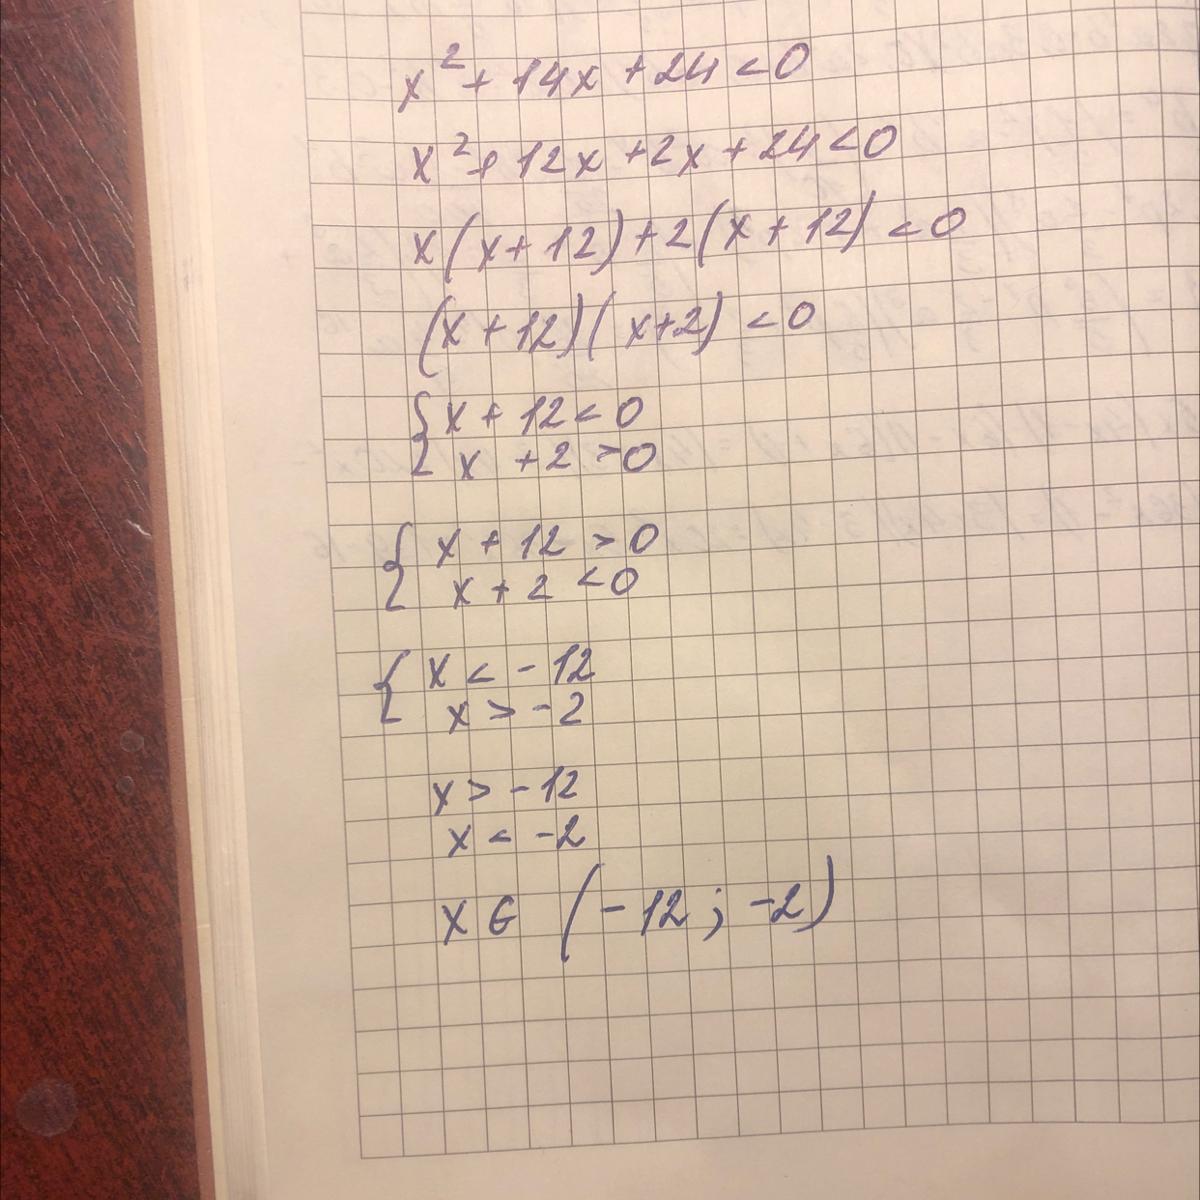 x² + 14x + 24 < 0
x² + 12x + 2x + 24 < 0
x(x + 12) + 2(x + 12) < 0
(x + 12)(x + 2) < 0
{ x + 12 < 0
x + 2 > 0
{ x + 12 > 0
x + 2 < 0
{ x < -12
x > -2
x > -12
x < -2
x ∈ (-12; -2)